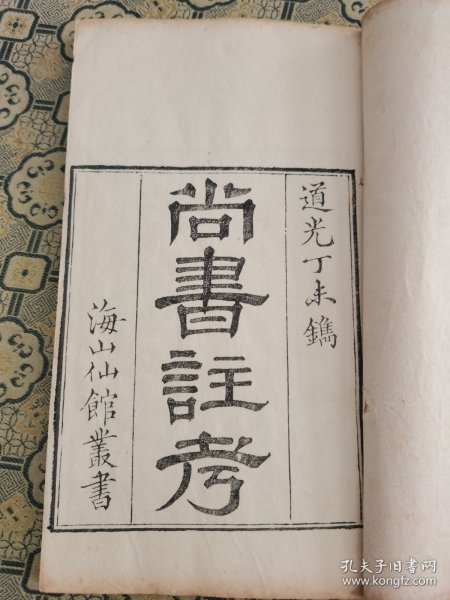 道光丁未鐫
尚書註考
海山仙館叢書
孔夫子旧书网
www.kongfz.com